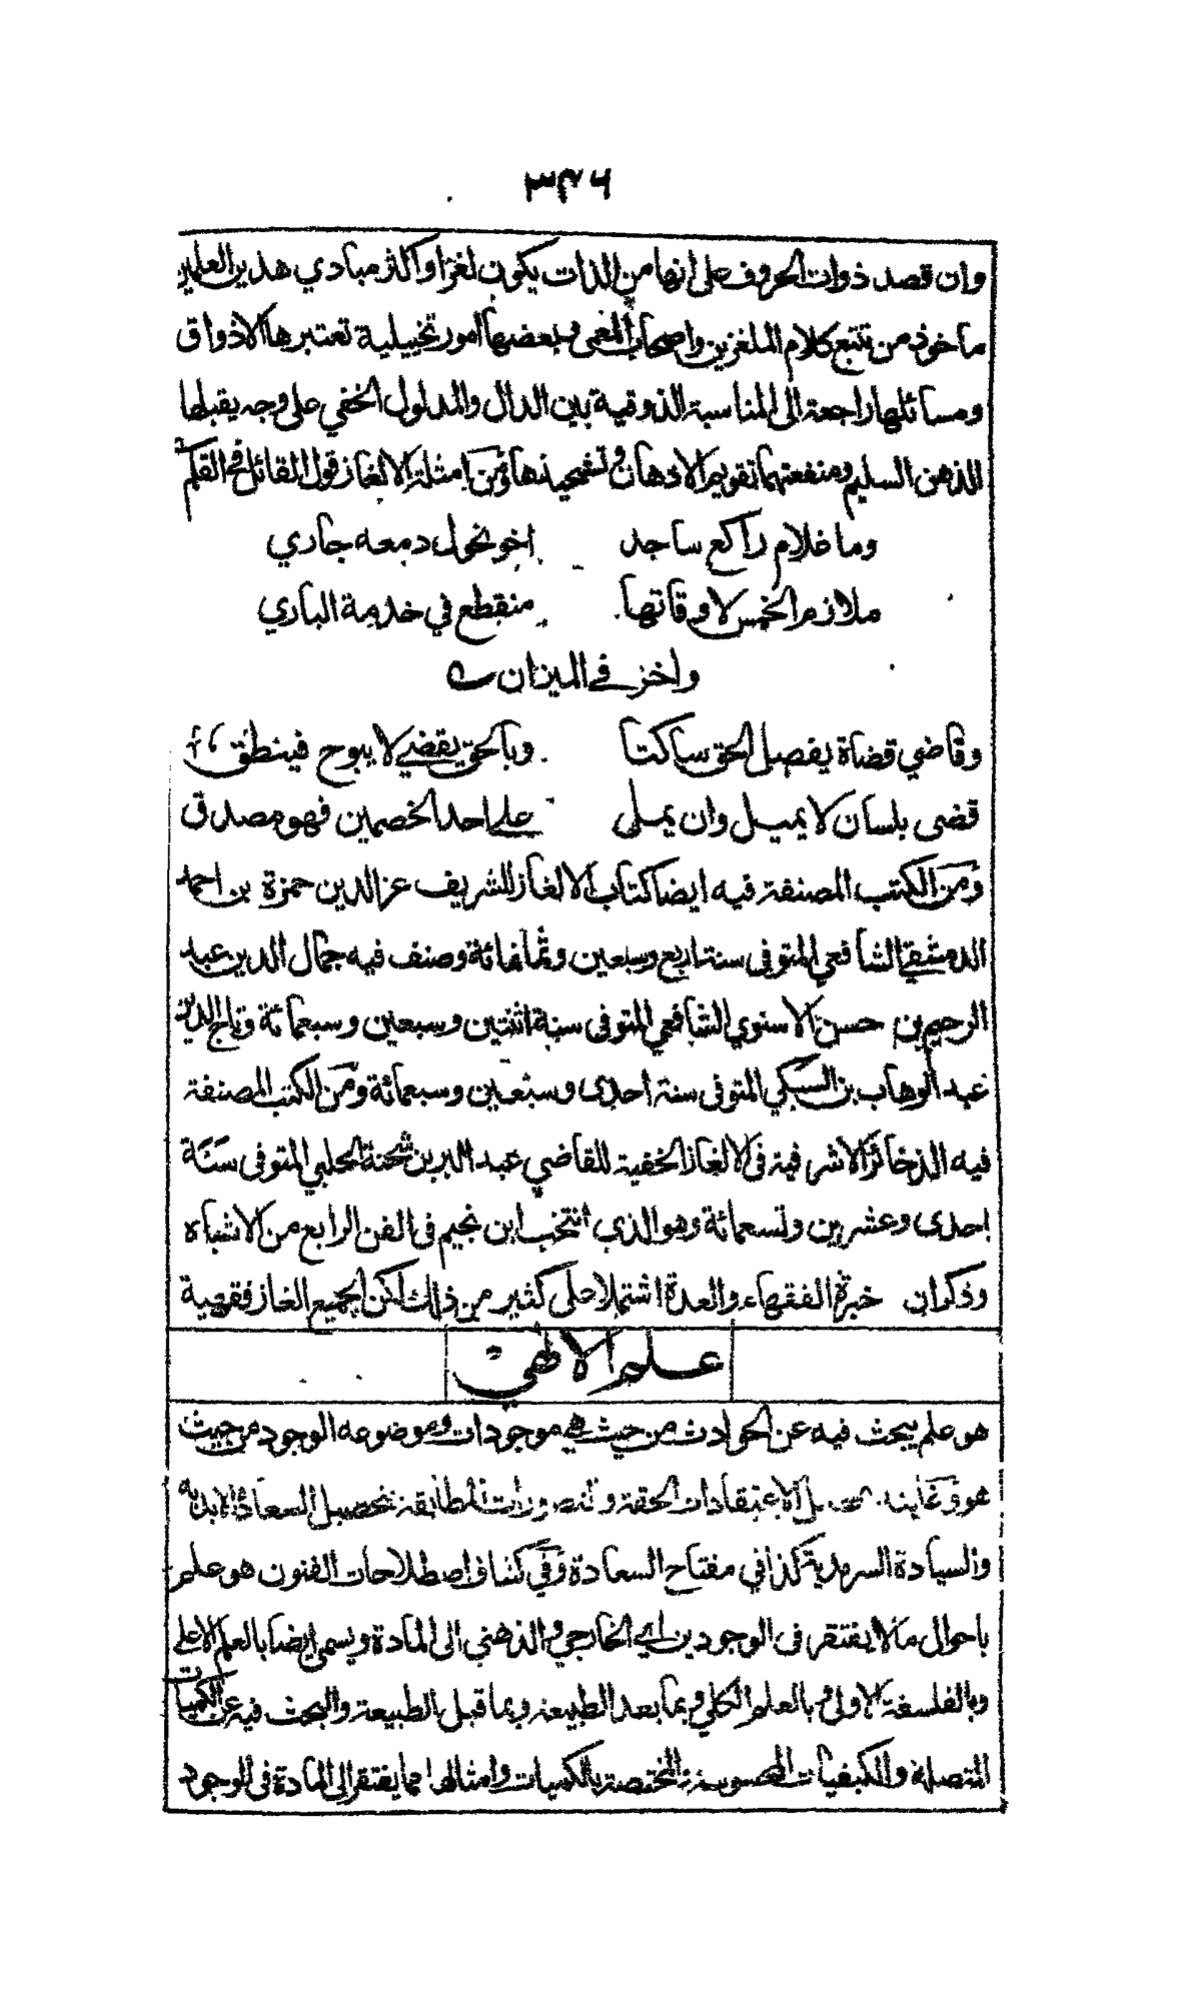 ٣٤٦
وان قصد ذوات الحروف على انها من الذات يكون لغزا واكثر مبادي هذين العلمين
ماخوذ من تتبع كلام الملغزين واصحاب المعمى وبعضها امور تخييلية تعتبرها الاذواق
ومسائلها راجعة الى المناسبة الذوقية بين الدال والمدلول الخفي على وجه يقبلها
الذهن السليم ومنفعتهما تقويم الاذهان وتشحيذها ومن امثلة الالغاز قول القائل في القلم
وما غلام راكع ساجد اخو نحول دمعه جاري
ملازم الخمس لاوقاتها منقطع في خدمة الباري
واخر في الميزان
وقاضي قضاة يفصل الحق ساكتا وبالحق يقضي لا يبوح فينطق
قضى بلسان لا يميل وان يمل على احد الخصمين فهو مصدق
ومن الكتب المصنفة فيه ايضا كتاب الالغاز للشريف عز الدين حمزة بن احمد
الدمشقي الشافعي المتوفى سنة اربع وسبعين وثمانمائة وصنف فيه جمال الدين عبد
الرحيم بن حسن الاسنوي الشافعي المتوفى سنة اثنتين وسبعين وسبعمائة وتاج الدين
عبد الوهاب بن السبكي المتوفى سنة احدى وسبعين وسبعمائة ومن الكتب المصنفة
فيه الذخائر الاشرفية في الالغاز الخفية للقاضي عبد البر بن شحنة الحلبي المتوفى سنة
احدى وعشرين وتسعمائة وهو الذي انتخب ابن نجيم في الفن الرابع من الاشباه
وذكر ان خيرة الفقهاء والعدة اشتملا على كثير من ذلك لكن الجميع الغاز فقهية
علم الالهي
هو علم يبحث فيه عن الحوادث من حيث هي موجودات وموضوعه الوجود من حيث
هو وغايته الاعتقادات الحقة والتصورات المطابقة لتحصيل السعادة الابدية
والسيادة السرمدية كذا في مفتاح السعادة وفي كشاف اصطلاحات الفنون هو علم
باحوال ما لا يفتقر في الوجودين اي الخارجي والذهني الى المادة ويسمى ايضا بالعلم الاعلى
وبالفلسفة الاولى وبالعلم الكلي وبما بعد الطبيعة وبما قبل الطبيعة والبحث فيه عن الكميات
المتصلة والكيفيات المحسوسة المختصة بالكميات وامثالها مما يفتقر الى المادة في الوجود